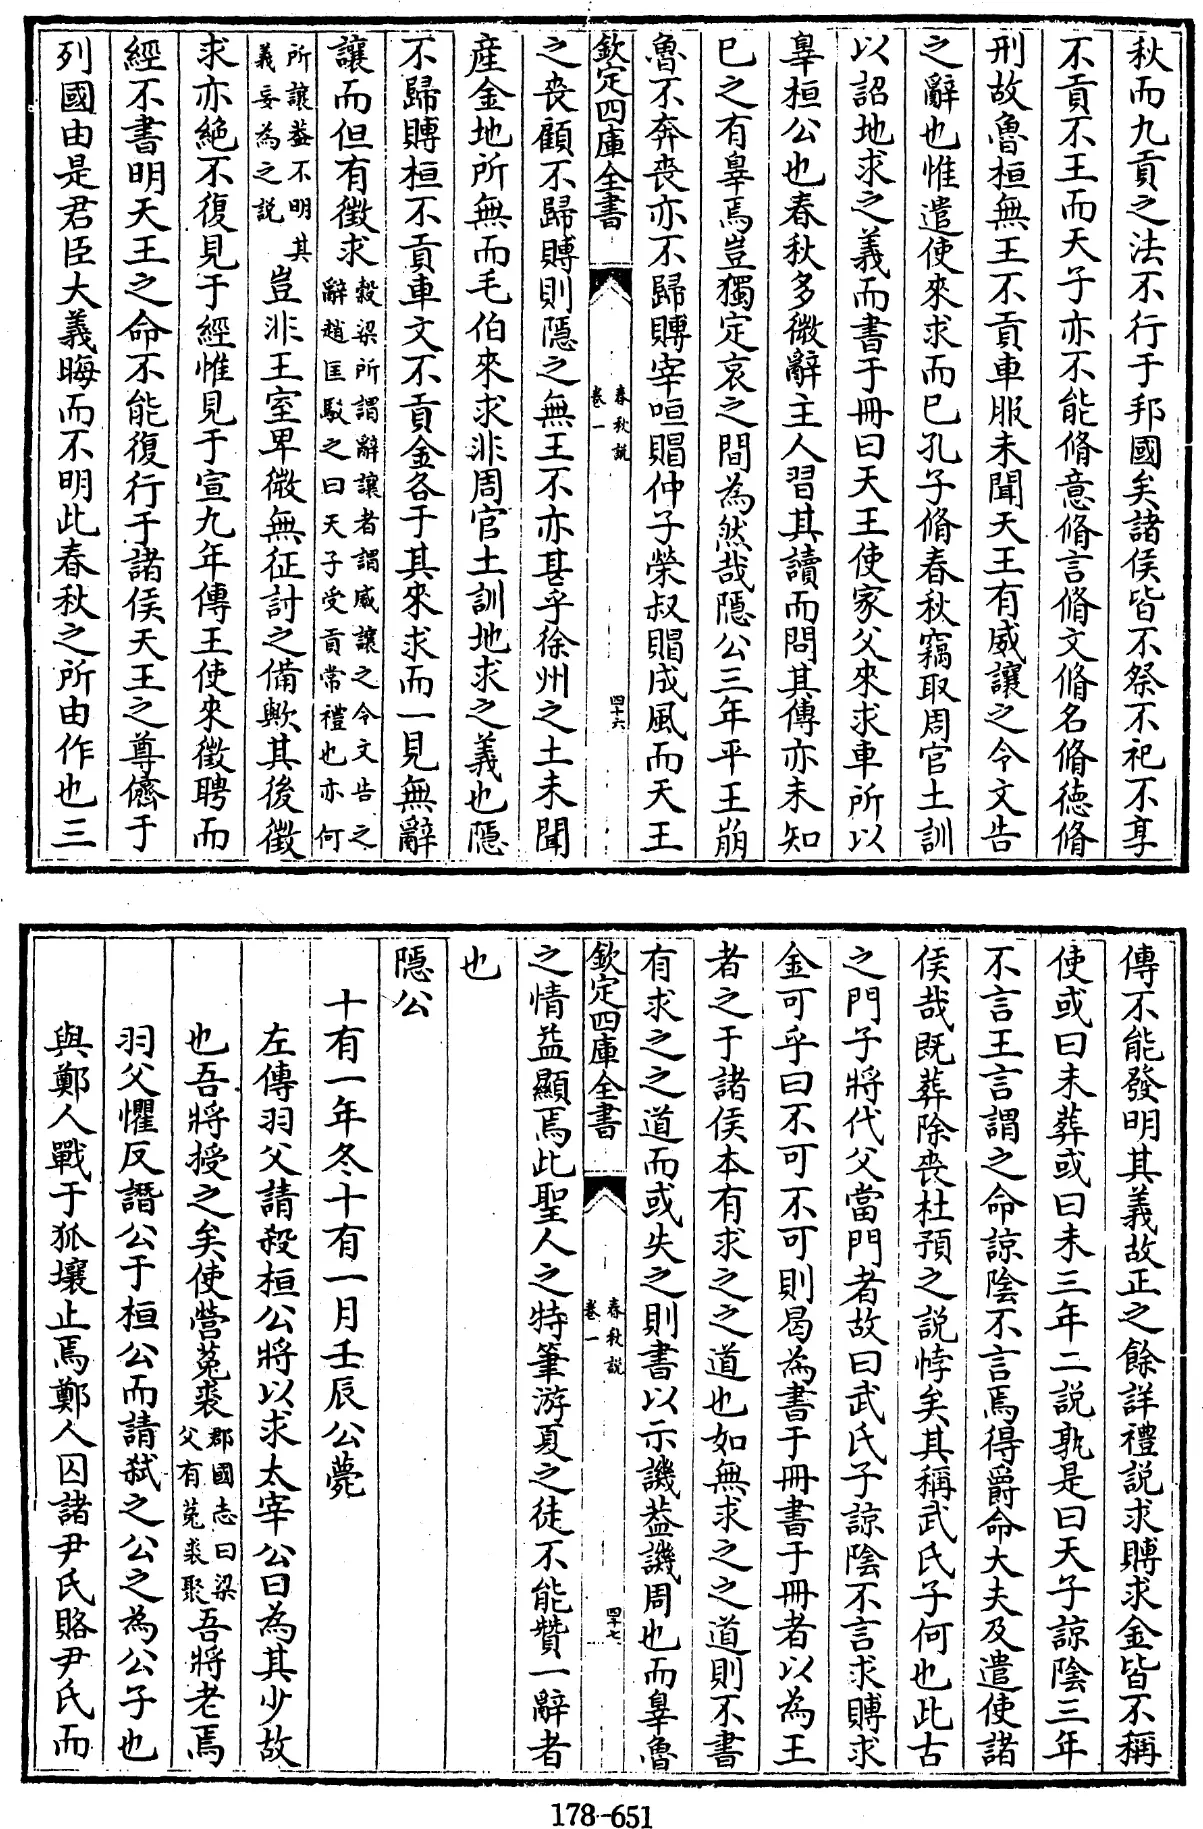 秋而九貢之法不行于邦國矣諸侯皆不祭不祀不享
不貢不王而天子亦不能脩意脩言脩文脩名脩德脩
刑故魯桓無王不貢車服未聞天王有威讓之令文告
之辭也惟遣使來求而已孔子脩春秋竊取周官土訓
以詔地求之義而書于冊曰天王使家父來求車所以
辠桓公也春秋多微辭主人習其讀而問其傳亦未知
已之有辠焉豈獨定哀之間為然哉隱公三年平王崩
魯不奔喪亦不歸賻宰咺賵仲子榮叔賵成風而天王
欽定四庫全書
春秋說
卷一
四十六
之喪顧不歸賻則隱之無王不亦甚乎徐州之土未聞
産金地所無而毛伯來求非周官土訓地求之義也隱
不歸賻桓不貢車文不貢金各于其來求而一見無辭
讓而但有徵求
穀梁所謂辭讓者謂威讓之令文告之
辭趙匡駁之曰天子受貢常禮也亦何
所讓葢不明其
義妄為之說
豈非王室卑微無征討之備歟其後徵
求亦絶不復見于經惟見于宣九年傳王使來徵聘而
經不書明天王之命不能復行于諸侯天王之尊儕于
列國由是君臣大義晦而不明此春秋之所由作也三
傳不能發明其義故正之餘詳禮說求賻求金皆不稱
使或曰未葬或曰未三年二說孰是曰天子諒陰三年
不言王言謂之命諒陰不言焉得爵命大夫及遣使諸
侯哉既葬除喪杜預之說悖矣其稱武氏子何也此古
之門子將代父當門者故曰武氏子諒陰不言求賻求
金可乎曰不可不可則曷為書于冊書于冊者以為王
者之于諸侯本有求之之道也如無求之之道則不書
有求之之道而或失之則書以示譏葢譏周也而辠魯
欽定四庫全書
春秋說
卷一
四十七
之情益顯焉此聖人之特筆游夏之徒不能贊一辭者
也
隱公
十有一年冬十有一月壬辰公薨
左傳羽父請殺桓公將以求太宰公曰為其少故
也吾將授之矣使營菟裘
郡國志曰梁
父有菟裘聚
吾將老焉
羽父懼反譖公于桓公而請弑之公之為公子也
與鄭人戰于狐壤止焉鄭人囚諸尹氏賂尹氏而
178-651